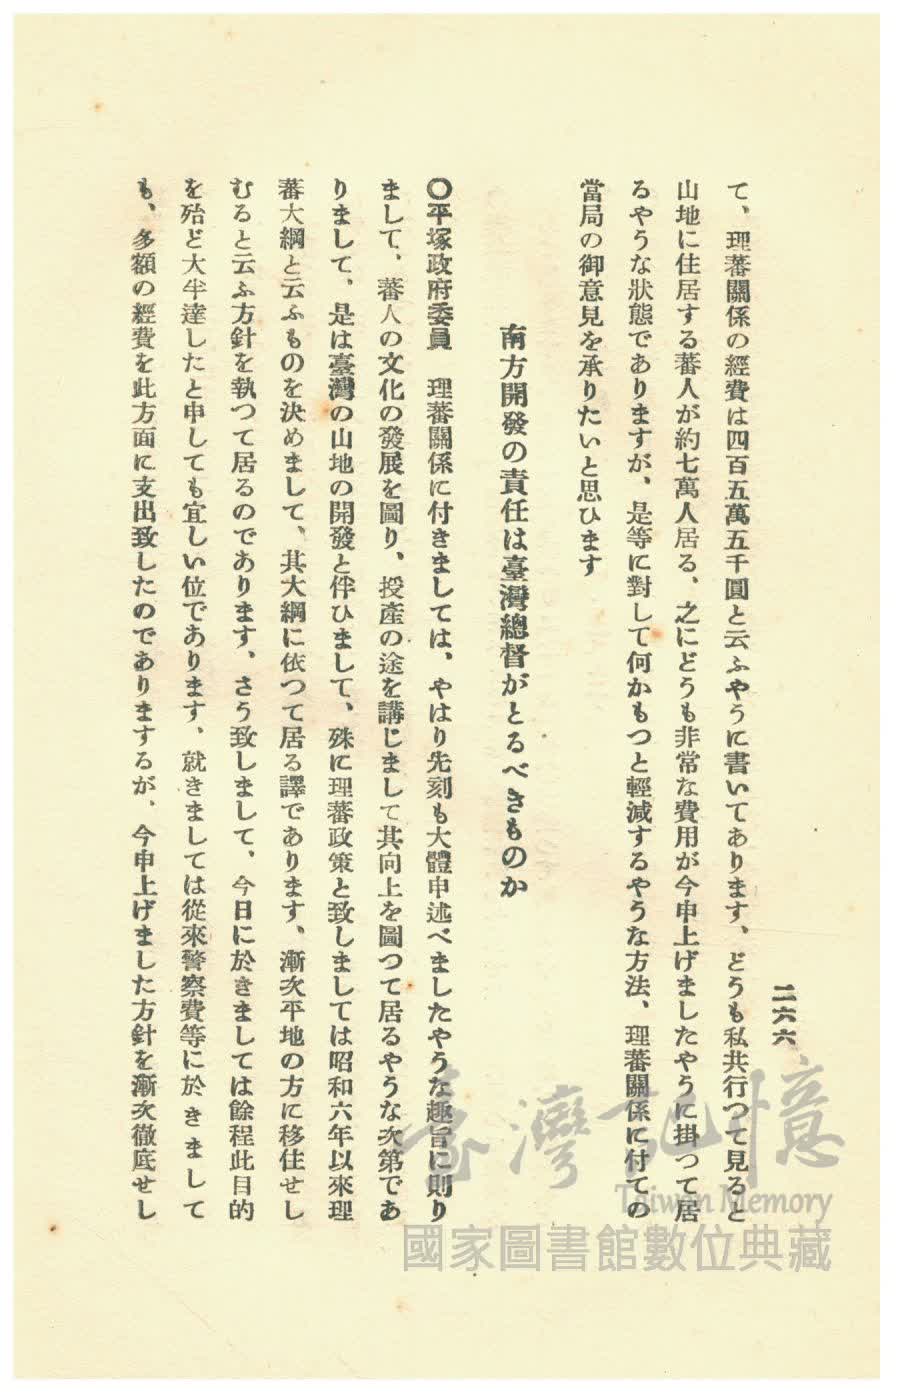 二六六
て、理蕃關係の經費は四百五萬五千圓と云ふやうに書いてあります、どうも私共行つて見ると
山地に住居する蕃人が約七萬人居る、之にどうも非常な費用が今申上げましたやうに掛つて居
るやうな狀態でありますが、是等に對して何かもつと輕減するやうな方法、理蕃關係に付ての
當局の御意見を承りたいと思ひます
南方開發の責任は臺灣總督がとるべきものか
〇平塚政府委員　理蕃關係に付きましては、やはり先刻も大體申述べましたやうな趣旨に則り
まして、蕃人の文化の發展を圖り、授產の途を講じまして其向上を圖つて居るやうな次第であ
りまして、是は臺灣の山地の開發と伴ひまして、殊に理蕃政策と致しましては昭和六年以來理
蕃大綱と云ふものを決めまして、其大綱に依つて居る譯であります、漸次平地の方に移住せし
むると云ふ方針を執つて居るのであります、さう致しまして、今日に於きましては餘程此目的
を殆ど大半達したと申しても宜しい位であります、就きましては從來警察費等に於きまして
も、多額の經費を此方面に支出致したのでありまするが、今申上げました方針を漸次徹底せし
臺灣記憶
Taiwan Memory
國家圖書館數位典藏